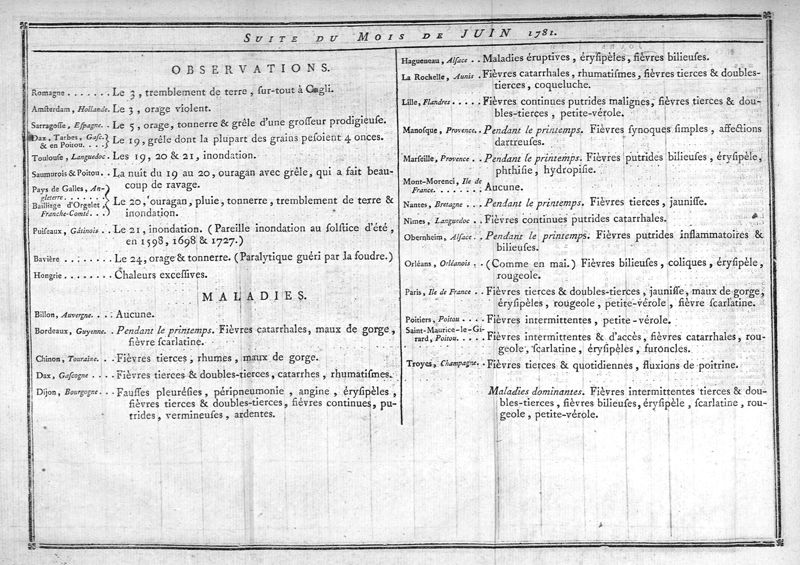 SUITE DU MOIS DE JUIN 1781.
OBSERVATIONS.
Romagne . . . . . . . Le 3, tremblement de terre, sur-tout à Cagli.
Amſterdam, Hollande. Le 3, orage violent.
Sarragoſſe, Eſpagne. . Le 5, orage, tonnerre & grêle d'une groſſeur prodigieuſe.
Dax, Tarbes, Gaſc.
& en Poitou. . . . Le 19, grêle dont la plupart des grains peſoient 4 onces.
Toulouſe, Languedoc. Les 19, 20 & 21, inondation.
Saumurois & Poitou. . La nuit du 19 au 20, ouragan avec grêle, qui a fait beau-
coup de ravage.
Pays de Galles, An-
gleterre . . . . . .
Bailliage d'Orgelet, Le 20, ouragan, pluie, tonnerre, tremblement de terre &
Franche-Comté. . . inondation.
Puiſeaux, Gâtinois . . Le 21, inondation. (Pareille inondation au ſolſtice d'été,
en 1598, 1698 & 1727.)
Bavière . . : . . . . . Le 24, orage & tonnerre. (Paralytique guéri par la foudre.)
Hongrie . . . . . . . . Chaleurs exceſſives.
MALADIES.
Billon, Auvergne. . . : Aucune.
Bordeaux, Guyenne. . Pendant le printemps. Fièvres catarrhales, maux de gorge,
fièvre ſcarlatine.
Chinon, Touraine. . . Fièvres tierces, rhumes, maux de gorge.
Dax, Gaſcogne . . . . Fièvres tierces & doubles-tierces, catarrhes, rhumatiſmes.
Dijon, Bourgogne. . . Fauſſes pleuréſies, péripneumonie, angine, éryſipèles,
fièvres tierces & doubles-tierces, fièvres continues, pu-
trides, vermineuſes, ardentes.
Hagueneau, Alſace . . Maladies éruptives, éryſipèles, fièvres bilieuſes.
La Rochelle, Aunis . Fièvres catarrhales, rhumatiſmes, fièvres tierces & doubles-
tierces, coqueluche.
Lille, Flandres . . . . . Fièvres continues putrides malignes, fièvres tierces & dou-
bles-tierces, petite-vérole.
Manoſque, Provence. . Pendant le printemps. Fièvres ſynoques ſimples, affections
dartreuſes.
Marſeille, Provence . . Pendant le printemps. Fièvres putrides bilieuſes, éryſipèle,
phthiſie, hydropiſie.
Mont-Morenci, Ile de
France. . . . . . . . . Aucune.
Nantes, Bretagne . . . Pendant le printemps. Fièvres tierces, jauniſſe.
Nimes, Languedoc . . Fièvres continues putrides catarrhales.
Obernheim, Alſace. . Pendant le printemps. Fièvres putrides inflammatoires &
bilieuſes.
Orléans, Orléanois . . (Comme en mai.) Fièvres bilieuſes, coliques, éryſipèle,
rougeole.
Paris, Ile de France . . Fièvres tierces & doubles-tierces, jauniſſe, maux de gorge,
éryſipèles, rougeole, petite-vérole, fièvre ſcarlatine.
Poitiers, Poitou. . . . Fièvres intermittentes, petite-vérole.
Saint-Maurice-le-Gi-
rard, Poitou. . . . . Fièvres intermittentes & d'accès, fièvres catarrhales, rou-
geole, ſcarlatine, éryſipèles, furoncles.
Troyes, Champagne. . Fièvres tierces & quotidiennes, fluxions de poitrine.
Maladies dominantes. Fièvres intermittentes tierces & dou-
bles-tierces, fièvres bilieuſes, éryſipèle, ſcarlatine, rou-
geole, petite-vérole.